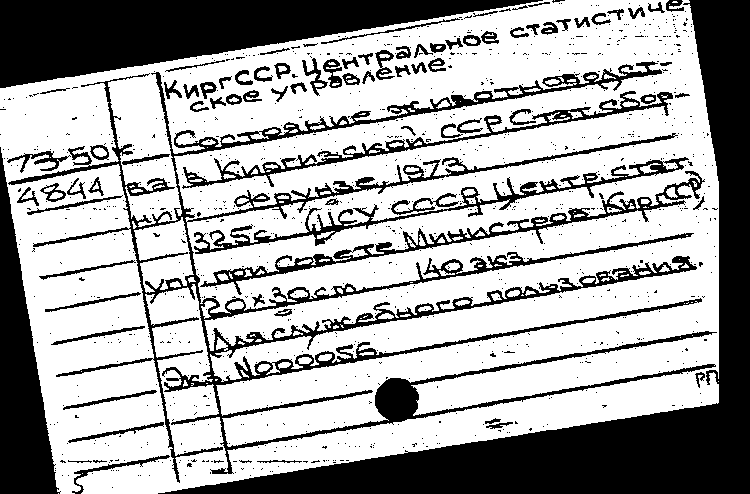 КиргССР. Центральное статистиче
ское управление.
73-50к
4844
Состояние животноводст-
ва в Киргизской ССР. Стат. сбор-
ник. Фрунзе, 1973.
325с. (ЦСУ СССР. Центр. стат.
упр. при Совете Министров КиргССР)
20×30 см. 140 экз.
Для служебного пользования.
Экз. N000056.
РП
5